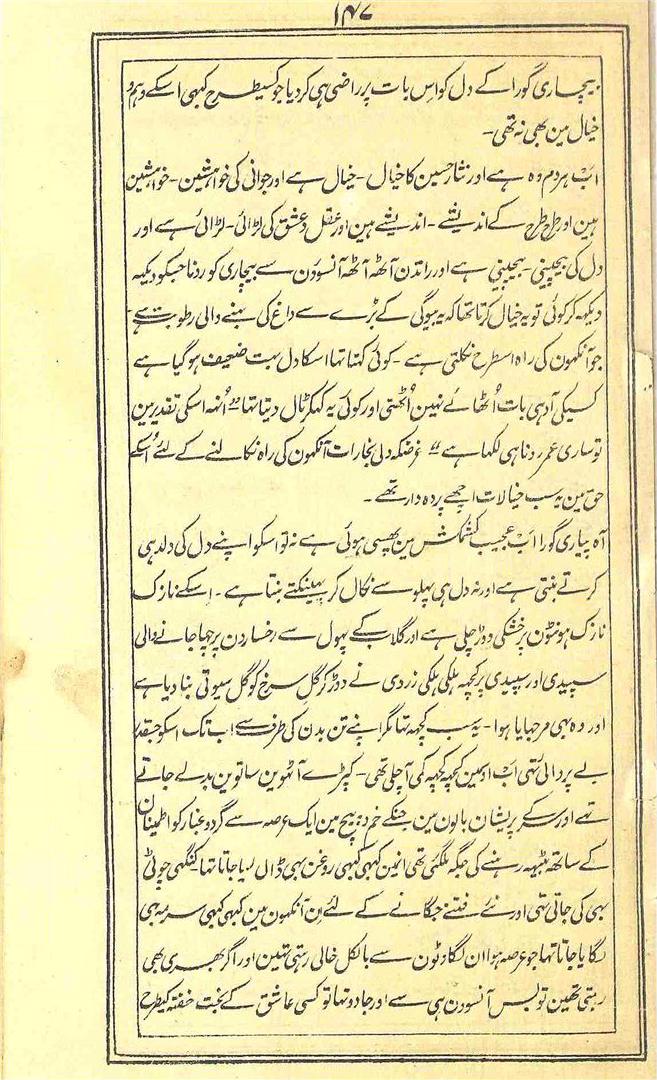 ۱۴۷
بیچاری گورا کے دل کو اس بات پر راضی ہی کر دیا جو کسیطرح کبھی اسکے وہم و
خیال مین بھی نہ تھی۔
اب ہر دم وہ ہے اور نثار حسین کا خیال۔ خیال ہے اور جوانی کی خواہشین۔ خواہشین
ہین اور طرح طرح کے اندیشے۔ اندیشے ہین اور عقل و عشق کی لڑائی۔ لڑائی ہے اور
دل کی بیچینی۔ بیچینی ہے اور راتدن آٹھ آٹھ آنسوؤن سے بیچاری کو رونا جسکو دیکہ
دیکہ کر کوئی تو یہ خیال کرتا تھا کہ یہ بیوگی کے بڑے سے داغ کی بہنے والی رطوبت ہے
جو آنکھون کی راہ اسطرح نکلتی ہے۔ کوئی کہتا تہا اسکا دل بہت ضعیف ہو گیا ہے
کسیکی آدہی بات اُٹھائے نہین اُٹھتی اور کوئی یہ کہکر ٹال دیتا تہا "اُنہہ اسکی تقدیر مین
تو ساری عمر رونا ہی لکھا ہے" غرضکہ دلی بخارات آنکھون کی راہ نکالنے کے لئے اُسکے
حق مین یہ سب خیالات اچھے پردہ دار تھے۔
آہ پیاری گورا اب عجیب کشمکش مین پھسی ہوئی ہے نہ تو اسکو اپنے دل کی دلدہی
کرتے بنتی ہے اور نہ دل ہی پہلو سے نکال کر پہینکتے بنتا ہے۔ اسکے نازک
نازک ہونٹون پر خشکی دوڑ چلی ہے اور گلاب کے پہول سے رخسارون پر چھا جانے والی
سپیدی اور سپیدی پر کچہ ہلکی ہلکی زردی نے دوڑ کر گل سرخ کو گل سیوتی بنا دیا ہے
اور وہ بہی مرجہایا ہوا۔ یہ سب کچہ تہا مگر اپنے تن بدن کی طرف سے اب تک اسکو جسقدر
بے پروائی تہی اب اسمین کچہ کچہ کمی آ چلی تھی۔ کپڑے آٹھوین ساتوین بدلے جاتے
تہے اور سر کے پریشان بالون مین جنکے خم و پیچ مین ایک عرصہ سے گرد و غبار کو اطمینان
کے ساتھ بیٹھ رہنے کی جگہ ملگئی تھی انمین کبھی کبھی روغن بہی ڈال لیا جاتا تہا۔ کنگھی چوٹی
بہی کی جاتی تہی اور نئے فتنے جگانے کے لئے اِن آنکھون مین کبھی کبھی سرمہ بہی
لگایا جاتا تہا جو عرصہ ہوا ان لگاوٹون سے بالکل خالی رہتی تہین اور اگر بھری بھی
رہتی تھین تو بس آنسوؤن ہی سے اور جادو تہا تو کسی عاشق کے بخت خفتہ کیطرح